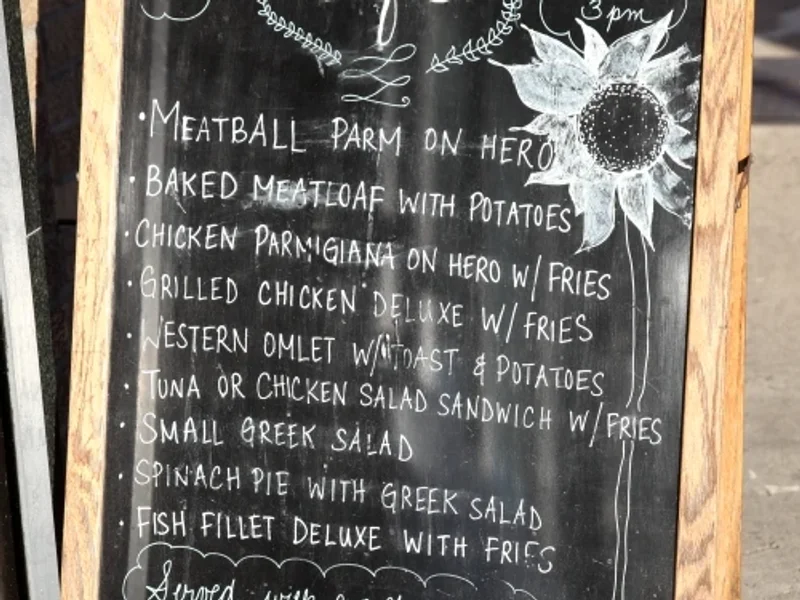 3pm
• MEATBALL PARM ON HERO
• BAKED MEATLOAF WITH POTATOES
• CHICKEN PARMIGIANA ON HERO W/ FRIES
• GRILLED CHICKEN DELUXE W/ FRIES
• WESTERN OMLET W/ TOAST & POTATOES
• TUNA OR CHICKEN SALAD SANDWICH W/ FRIES
• SMALL GREEK SALAD
• SPINACH PIE WITH GREEK SALAD
• FISH FILLET DELUXE WITH FRIES
Served with